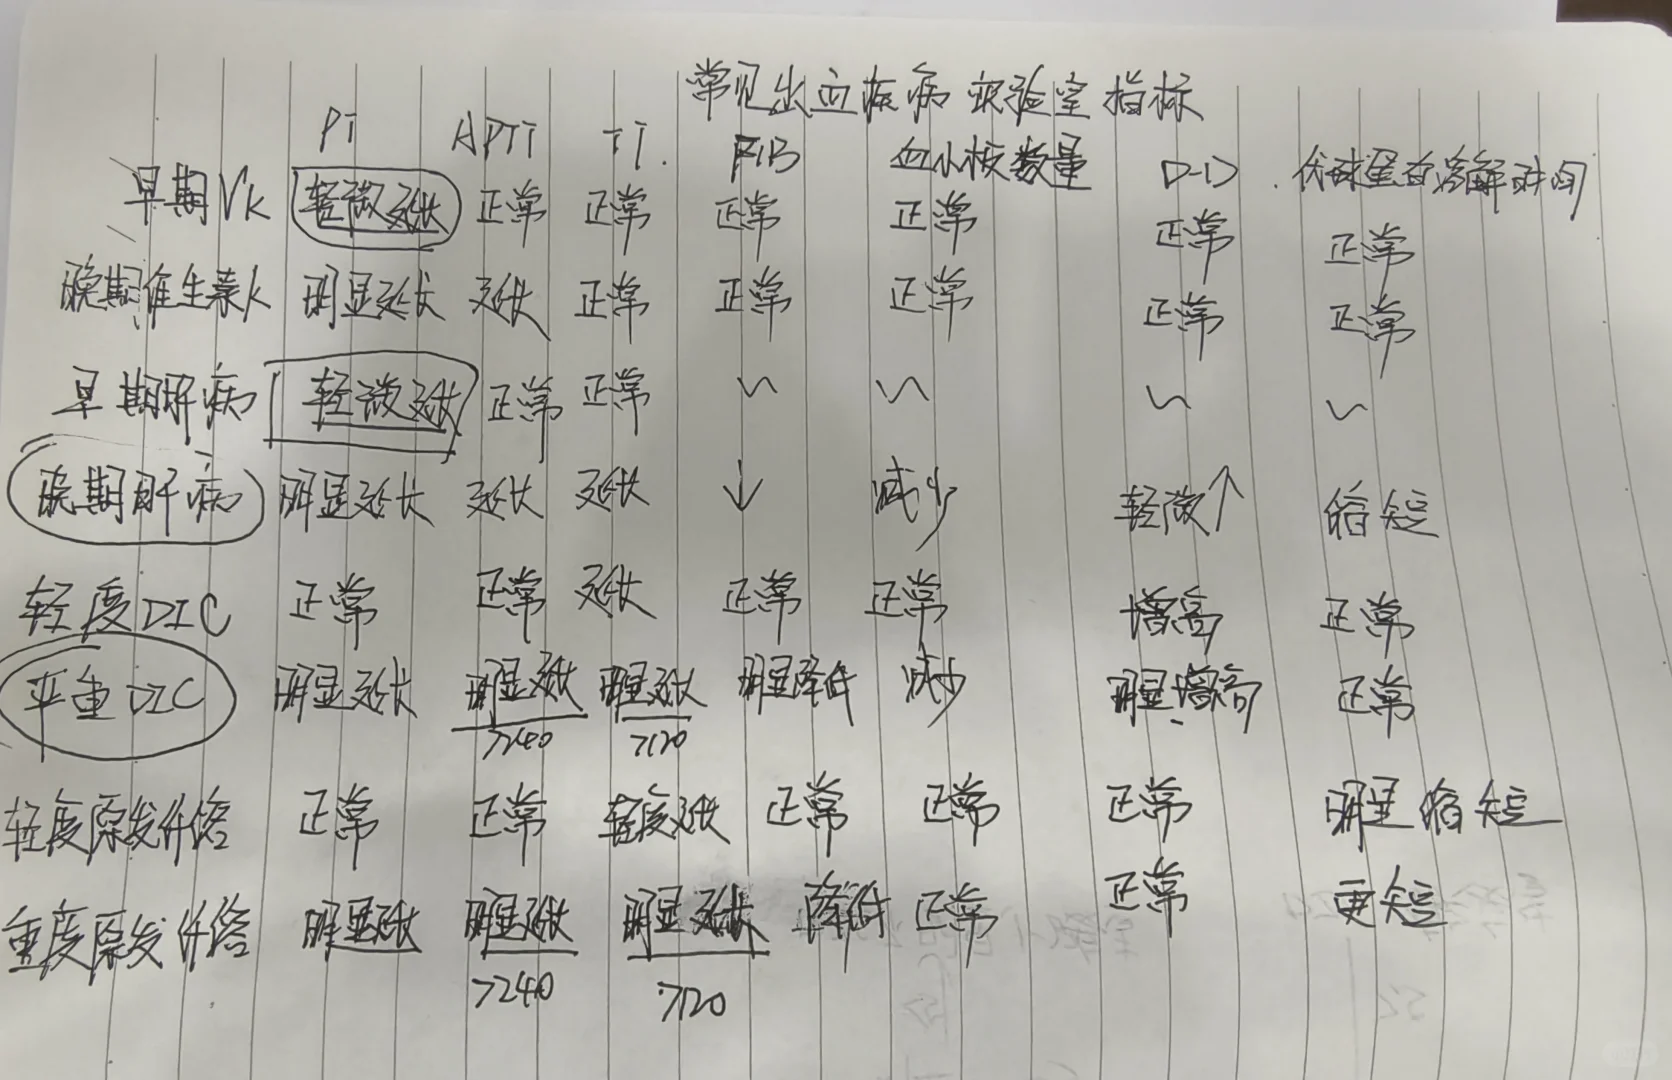 常见出血疾病实验室指标
PT APTT TT. FIB 血小板数量 D-D 优球蛋白溶解时间
早期Vk 轻微延长 正常 正常 正常 正常 正常 正常
晚期维生素K 明显延长 延长 正常 正常 正常 正常 正常
早期肝病 轻微延长 正常 正常 ~ ~ ~ ~
晚期肝病 明显延长 延长 延长 ↓ 减少 轻微↑ 缩短
轻度DIC 正常 正常 延长 正常 正常 增高 正常
严重DIC 明显延长 明显延长 明显延长 明显降低 减少 明显增高 正常
>240 >120
轻度原发纤溶 正常 正常 轻度延长 正常 正常 正常 明显缩短
重度原发纤溶 明显延长 明显延长 明显延长 降低 正常 正常 更短
>240 >120